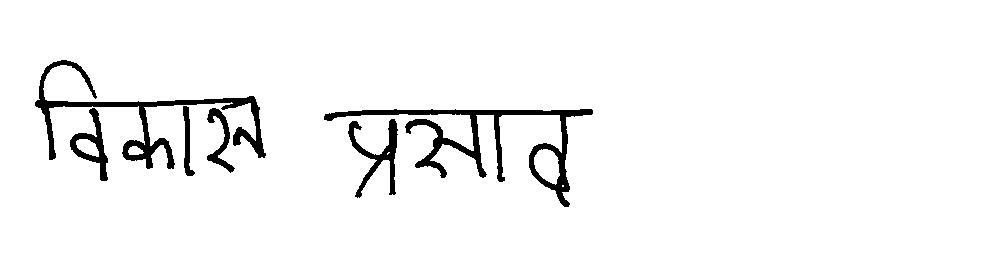 विकास प्रसाव